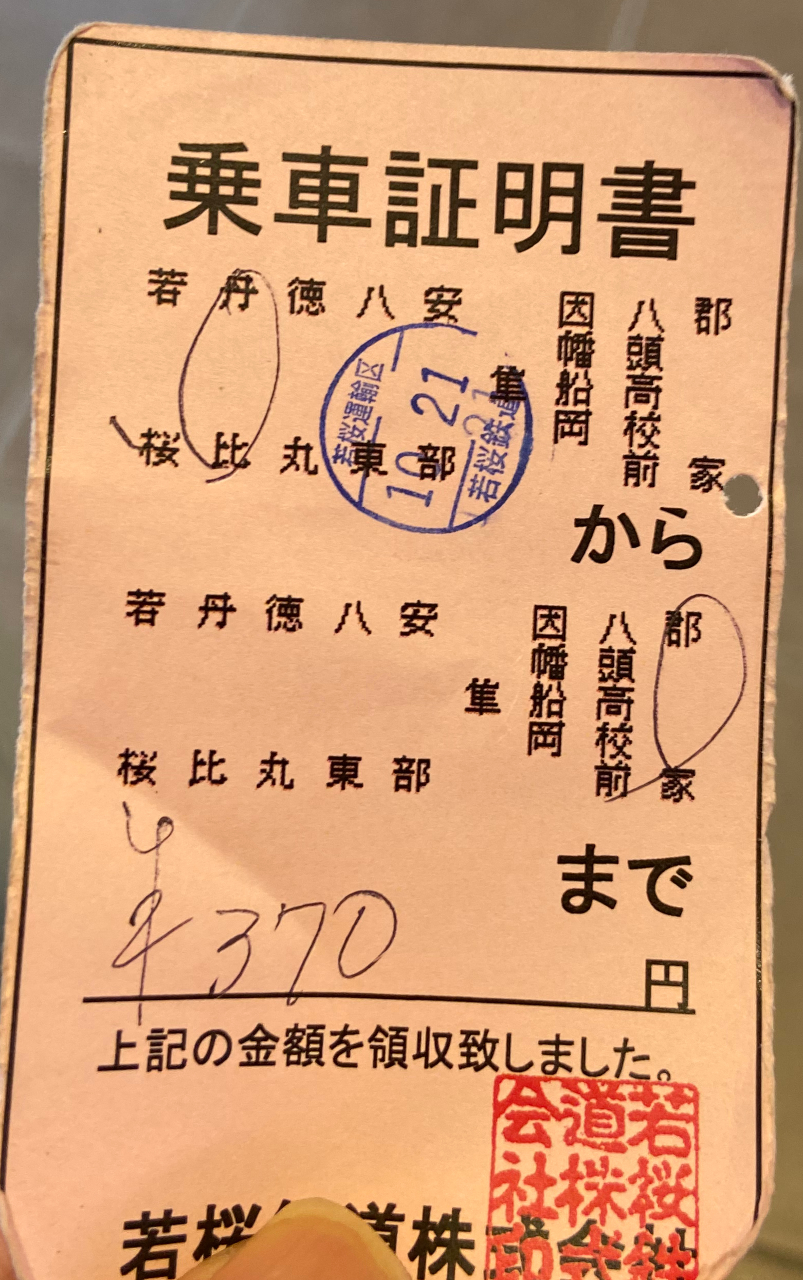 乗車証明書
郡家
八頭高校前
因幡船岡
隼
安部
八東
徳丸
丹比
若桜
若桜運輸区
10.21
若桜鉄道
から
郡家
八頭高校前
因幡船岡
隼
安部
八東
徳丸
丹比
若桜
まで
¥370
円
上記の金額を領収致しました。
若桜
道株
若桜鉄
道株
会社